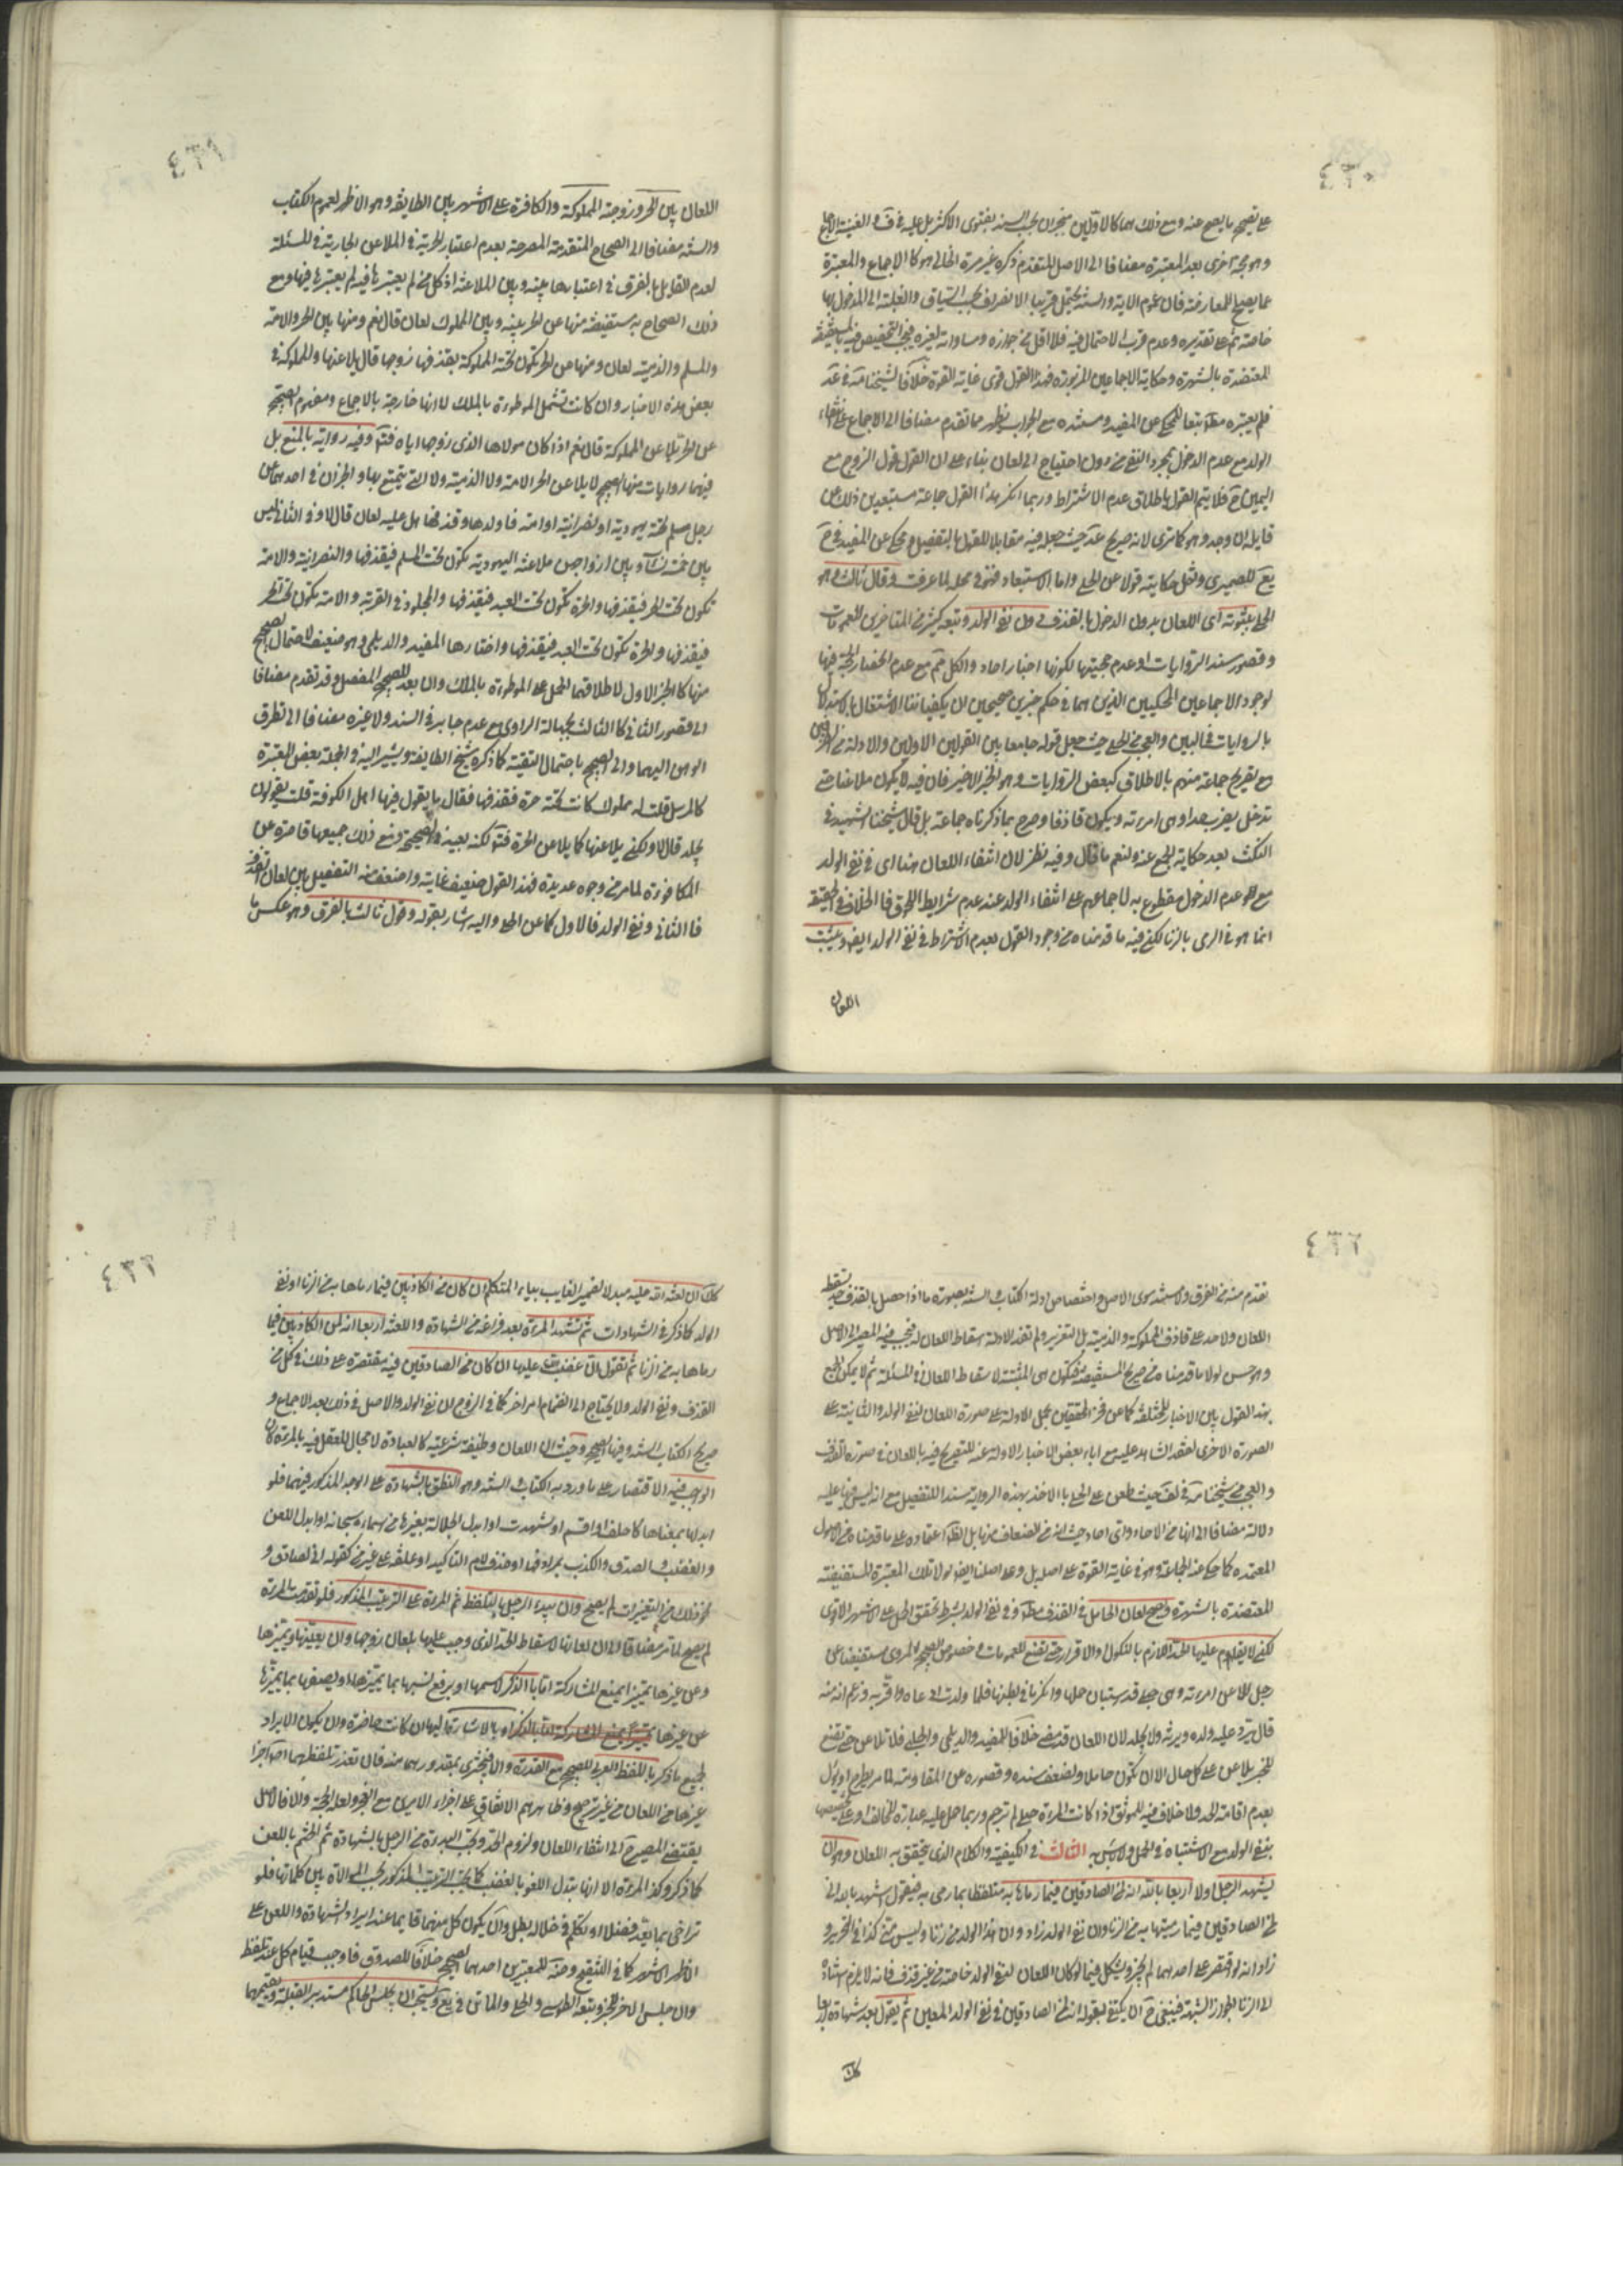 ٤٣٠
على تصحيح ما يصح عنه ومع ذلك هما كالاولين منجبران بحسب السند بفتوى الاكثر بل عليه في ف والغنية الاجماع
وهو حجة اخرى بعد المعتبرة مضافا الى الاصل المتقدم ذكره غير مرة الخالي هو كالاجماع والمعتبرة
عما يصلح للمعارضة فان عموم الآية والسنة يحتمل قريبا الانصراف بحسب السياق والغلبة الى المدخول بها
خاصة ثم على تقديره وعدم قرب الاحتمال فيه فلا اقل من جوازه ومساواته لغيره فيجب التخصيص فيه بالمستفيضة
المعتضدة بالشهرة وحكاية الاجماعين المزبورة فهذا القول قوى غاية القوة خلافا لشيخنا في عد
فلم يعتبره مط تبعا للمحكي عن المفيد ومستنده مع الجواب يظهر مما تقدم مضافا الى الاجماع على انتفاء
الولد مع عدم الدخول بمجرد النفي من دون احتياج الى لعان بناء على ان القول قول الزوج مع
اليمين ح فلا يتم القول باطلاق عدم الاشتراط وربما انكر هذا القول جماعة مستبعدين ذلك عن
قايله ان وجد وهو كما ترى لانه صريح عد حيث جعله فيه مقابلا للقول بالتفصيل ومحكي عن المفيد في ح
يع للصيمري ونقل حكايته قولا عن الحلي واما الاستبعاد فهو في محله لما عرفت وقال ثالث وهو
الحلي بثبوته اى اللعان بدون الدخول بالقذف دون نفي الولد وتبعه كثير من المتاخرين للعمومات
وقصور سند الروايات او عدم حجيتها لكونها اخبار احاد والكل كم مع عدم انحصار الحجة فيها
لوجود الاجماعين المحكيين الذين هما في حكم خبرين صحيحين ان يكفياننا الاشتغال بالاستدلال
بالروايات في البين والعجب من الحلي حيث جعل قوله جامعا بين القولين الاولين والادلة من الطرفين
مع تصريح جملة منهم بالاطلاق كبعض الروايات وهو الخبر الاخير فان فيه لا يكون ملاعنا حتى
يدخل يضرب حدا وهى امرءته ويكون قاذفا وصرح بما ذكرناه جماعة بل قال شيخنا الشهيد في
النكت بعد حكاية الجمع عنه ولنعم ما قال وفيه نظر لان انتفاء اللعان هنا اى في نفي الولد
مع عدم الدخول مقطوع به لاجماعهم على انتفاء الولد عند عدم شرايط اللحوق فالخلاف في الحقيقة
انما هو في الرمى بالزنا لكن فيه ما قدمناه من وجود القول بعدم الاشتراط في نفي الولد ايضا ويثبت
اللعان
٤٣١
اللعان بين الحر وزوجته المملوكة والكافرة على الاشهر بين الطايفة وهو الاظهر لعموم الكتاب
والسنة مضافا الى الصحاح المتقدمة المصرحة بعدم اعتبار الحرية في الملاعن الجارية في المسئلة
لعدم القايل بالفرق في اعتبارها بينه وبين الملاعنة اذ كل من لم يعتبرها فيه لم يعتبرها فيها ومع
ذلك الصحاح به مستفيضة منها عن الحر بينه وبين المملوك لعان قال نعم ومنها بين الحر والامة
والمسلم والذمية لعان ومنها عن الحر تكون تحته المملوكة يقذفها زوجها قال يلاعنها والمملوكة في
بعض هذه الاخبار وان كانت تشمل الموطوءة بالملك الا انها خارجة بالاجماع ومفهوم الصحيح
عن الحر يلاعن المملوكة قال نعم اذا كان مولاها الذى زوجها اياه فتم وفيه رواية بالمنع بل
فيهما روايات منها الصحيح لا يلاعن الحر الامة ولا الذمية ولا التي يتمتع بها والخبران في احدهما عن
رجل مسلم تحته يهودية او نصرانية او امة فاولدها وقذفها هل عليه لعان قال لا وفي الثاني ليس
بين خمس نساء وبين ازواجهن ملاعنة اليهودية تكون تحت المسلم فيقذفها والنصرانية والامة
تكون تحت الحر فيقذفها والحرة تكون تحت العبد فيقذفها والمجلود في الفرية والامة تكون تحت الحر
فيقذفها والحرة تكون تحت العبد فيقذفها واختارها المفيد والديلمي وهو ضعيف لاحتمال الصحيح
منها كالخبر الاول لاطلاقهما الحمل على الموطوءة بالملك والثانى بعد الصحيح المفصل وقد تقدم مضافا
الى قصور الثاني كالثالث بجهالة الراوى مع عدم جابر في السند ولا غيره مضافا الى تطرق
الوهن اليهما والى الصحيح باحتمال التقية كما ذكره شيخ الطايفة ويشير اليه في الجملة بعض المعتبرة
كالمرسل قلت له مملوك كانت تحته حرة فقذفها فقال ما يقول فيها اهل الكوفة قلت يقولون
يجلد قال لا ولكن يلاعنها كما يلاعن الحرة فتم لكنه بعينه في الصحيح ومع ذلك جميعها قاصرة عن
المكافوءة لما مر من وجوه عديدة فهذا القول ضعيف غايته واضعف منه التفصيل بين لعان القذف
فالثاني ونفي الولد فالاول كما عن الحلي واليه اشار بقوله وقول ثالث بالفرق وهو عكس ما
٤٣٢
تقدم منه من الفرق ولا مستند سوى الاصل واختصاص ادلة الكتاب والسنة بصورة ما اذا حصل بالقذف حد يسقط
اللعان ولا حد على قاذف المملوكة والذمية بل التعزير ولم تفد الادلة اسقاط اللعان له فيجب فيه المصير الى الاصل
وهو حسن لولا ما قدمناه من صريح المستفيضة فتكون هى المثبتة لاسقاط اللعان في المسئلة ثم لا يمكن الجمع
بهذا القول بين الاخبار المختلفة كما عن فخر المحققين بحمل الاولة على صورة اللعان لنفي الولد والثانية على
الصورة الاخرى لفقد الشاهد عليه مع اباء بعض الاخبار الاولة عنه للتصريح فيه باللعان في صورة القذف
والعجب من شيخنا في لف حيث طعن على الحلي بالاخذ بهذه الرواية سندا للتفصيل مع انه ليس فيها عليه
دلالة مضافا الى انها من الاحاد واى احاد حيث انه من الضعاف مزيل بل الظ اعتماده على ما قدمناه من الاصول
المعتمدة كما حكى عنه الجماعة وهو في غاية القوة على اصله بل وعلى اصلنا ايضا لولا تلك المعتبرة المستفيضة
المعتضدة بالشهرة ويصح لعان الحامل في القذف مط وفي نفي الولد بشرط تحقق الحمل على الاشهر الاقوى
لكن لا يقام عليها الحد اللازم بالنكول والاقرار حتى تضع للعمومات وخصوص الصحيح المروى مستفيضا عن
رجل لاعن امرءته وهى حبلى قد استبان حملها وانكر ما في بطنها فلما ولدت ادعاه واقر به وزعم انه منه
قال يرد عليه ولده ويرثه ولا يجلد لان اللعان قد مضى خلافا للمفيد والديلمي والحلبي فلا تلاعن حتى تضع
للخبر يلاعن على كل حال الا ان تكون حاملا ولضعف سنده وقصوره عن المقاومة لما مر يطرح او يؤل
بعدم اقامة الحد ولا خلاف فيه للموثق اذا كانت المرءة حبلى لم ترجم وربما حمل عليه عبارة المخالف او على تخصيصها
بنفي الولد مع الاشتباه في الحمل ولا باس به الثالث في الكيفية والكلام الذى يتحقق به اللعان وهو ان
يشهد الرجل اولا اربعا بالله انه لمن الصادقين فيما رماها به متلفظا بما رمى به فيقول اشهد بالله انى
لمن الصادقين فيما رميتها به من الزنا وان نفي الولد زاد وان هذا الولد من زنا وليس مني كذا في التحرير و
زاد انه لو اقتصر على احدهما لم يجز ويشكل فيما لو كان اللعان لنفي الولد خاصة من غير قذف فانه لا يلزم اسناده
الى الزنا لجواز الشبهة فينبغي ح ان يكتفي بقوله انه لمن الصادقين في نفي الولد المعين ثم يقول بعد شهادته اربعا
كك
٤٣٣
كك ان لعنة الله عليه مبدلا لضمير الغايب بياء المتكلم ان كان من الكاذبين فيما رماها به من الزنا او نفي
الولد كما ذكر في الشهادات ثم تشهد المرءة بعد فراغه من الشهادة واللعنة اربعا انه لمن الكاذبين فيما
رماها به من الزنا ثم تقول ان غضب الله عليها ان كان من الصادقين فيه مقتصرة على ذلك في كل من
القذف ونفي الولد ولا يحتاج الى انضمام امر اخر كما في الزوج ان نفي الولد والاصل في ذلك بعد الاجماع و
صريح الكتاب السنة وفيها الصحيح وحيث ان اللعان وظيفة شرعية كالعبادة لا مجال للعقل فيه بالمرة كان
الواجب فيه الاقتصار على ما ورد به الكتاب والسنة وهو النطق بالشهادة على الوجه المذكور فيهما فلو
ابدلها بمعناها كاحلف او اقسم او شهدت او ابدل الجلالة بغيرها من اسماءه سبحانه او ابدل اللعن
والغضب والصدق والكذب بمرادفها او حذف لام التاكيد او علقه على غير من كقوله انى لصادق و
نحو ذلك من التغييرات لم يصح وان يبدء الرجل بالتلفظ ثم المرءة على الترتيب المذكور فلو تقدمت المرءة
لم يصح لما مر مضافا الى ان لعانها لاسقاط الحد الذى وجب عليها بلعان زوجها وان يعينها ويميزها
وعن غيرها تمييزا يمنع المشاركة اما بالذكر لاسمها او يرفع نسبها بما يميزها او يصفها بما يميزها
عن غيرها او بالاشارة اليها ان كانت حاضرة وان يكون الايراد
لجميع ما ذكر باللفظ العربي الصحيح مع القدرة والا فيجتزى بمقدورهما منه فان تعذر تلفظهما اصلا اجزا
غيرها من اللعان من غير ترجيح وظاهرهم الاتفاق على اجزاء الامرين مع العجز ولعله الحجة والا فالاصل
يقتضى المصير ح الى انتفاء اللعان ولزوم الحد وتجب البدءة من الرجل بالشهادة ثم الختم باللعن
كما ذكر وكذا المرءة الا انها تبدل اللعن بالغضب كما يجب الترتيب المذكور يجب الموالاة بين كلماتها فلو
تراخى بما يعد فصلا او تكلم في خلاله بطل وان يكون كل منهما قايما عند ايراد الشهادة واللعن على
الاظهر الاشهر كما في التنقيح وضه للمعتبرين احدهما الصحيح خلافا للصدوق فاوجب قيام كل عند تلفظ
وان جلس الاخر للخبر وتبعه الطوسى والحلي والماتن في يع ويستحب ان يجلس الحاكم مستدبر القبلة ويقيمهما